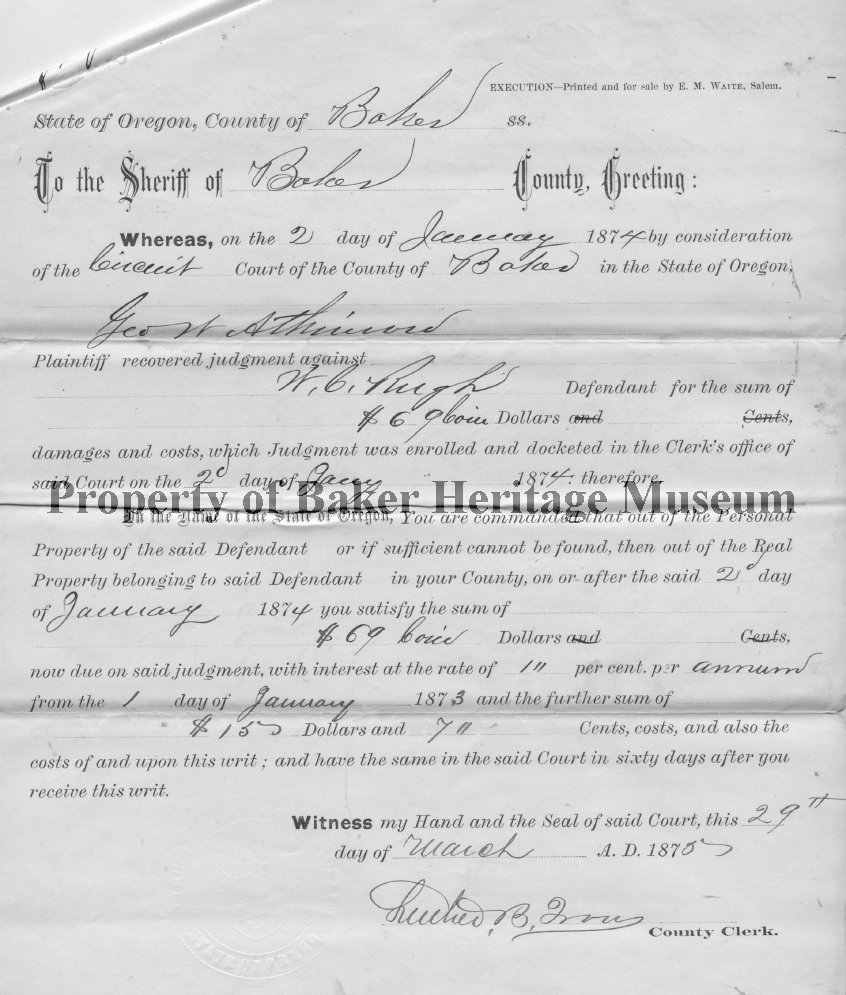 EXECUTION—Printed and for sale by E. M. WAITE, Salem.
State of Oregon, County of Baker ss.
To the Sheriff of Baker County, Greeting:
Whereas, on the 2 day of January 1874 by consideration
of the Circuit Court of the County of Baker in the State of Oregon,
Geo W Atkinson
Plaintiff recovered judgment against
W. C. Rugh Defendant for the sum of
$69 Coin Dollars and Cents,
damages and costs, which Judgment was enrolled and docketed in the Clerk's office of
said Court on the 2d day of Jany 1874: therefore,
Property of Baker Heritage Museum
In the Name of the State of Oregon, You are commanded that out of the Personal
Property of the said Defendant or if sufficient cannot be found, then out of the Real
Property belonging to said Defendant in your County, on or after the said 2d day
of January 1874 you satisfy the sum of
$69 Coin Dollars and Cents,
now due on said judgment, with interest at the rate of 1" per cent. per annum
from the 1 day of January 1873 and the further sum of
$15 Dollars and 7" Cents, costs, and also the
costs of and upon this writ; and have the same in the said Court in sixty days after you
receive this writ.
Witness my Hand and the Seal of said Court, this 29"
day of March A. D. 1875
Luther B. Ison
County Clerk.